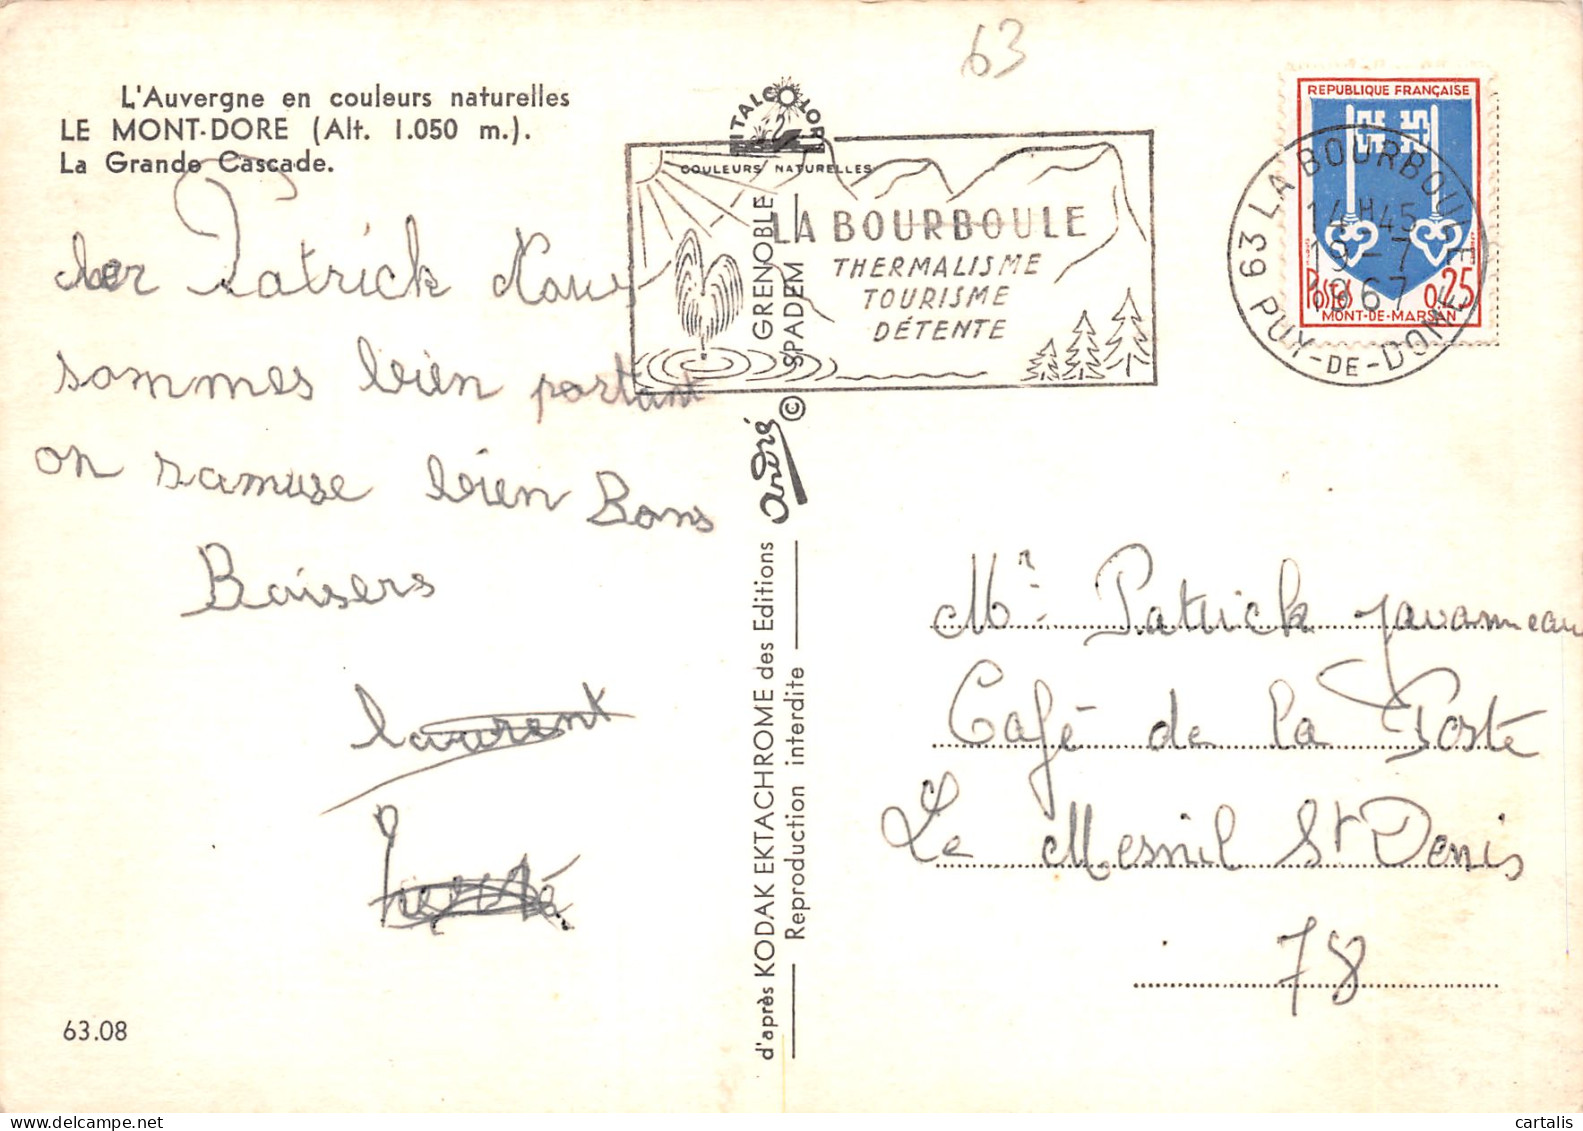 63
L'Auvergne en couleurs naturelles
LE MONT-DORE (Alt. 1.050 m.).
La Grande Cascade.
cher Patrick Nous
sommes bien portant
on samuse bien Bons
Baisers
laurent
63.08
ITALCOLOR
COULEURS NATURELLES
LA BOURBOULE
THERMALISME
TOURISME
DÉTENTE
GRENOBLE
© SPADEM
André
d'après KODAK EKTACHROME des Editions
Reproduction interdite
REPUBLIQUE FRANÇAISE
POSTES 0,25
MONT-DE-MARSAN
63 LA BOURBOULE
14H45
19-7
1967
PUY-DE-DOME
Mr. Patrick Javanneau
Café de la Poste
Le Mesnil St Denis
78
cartalis